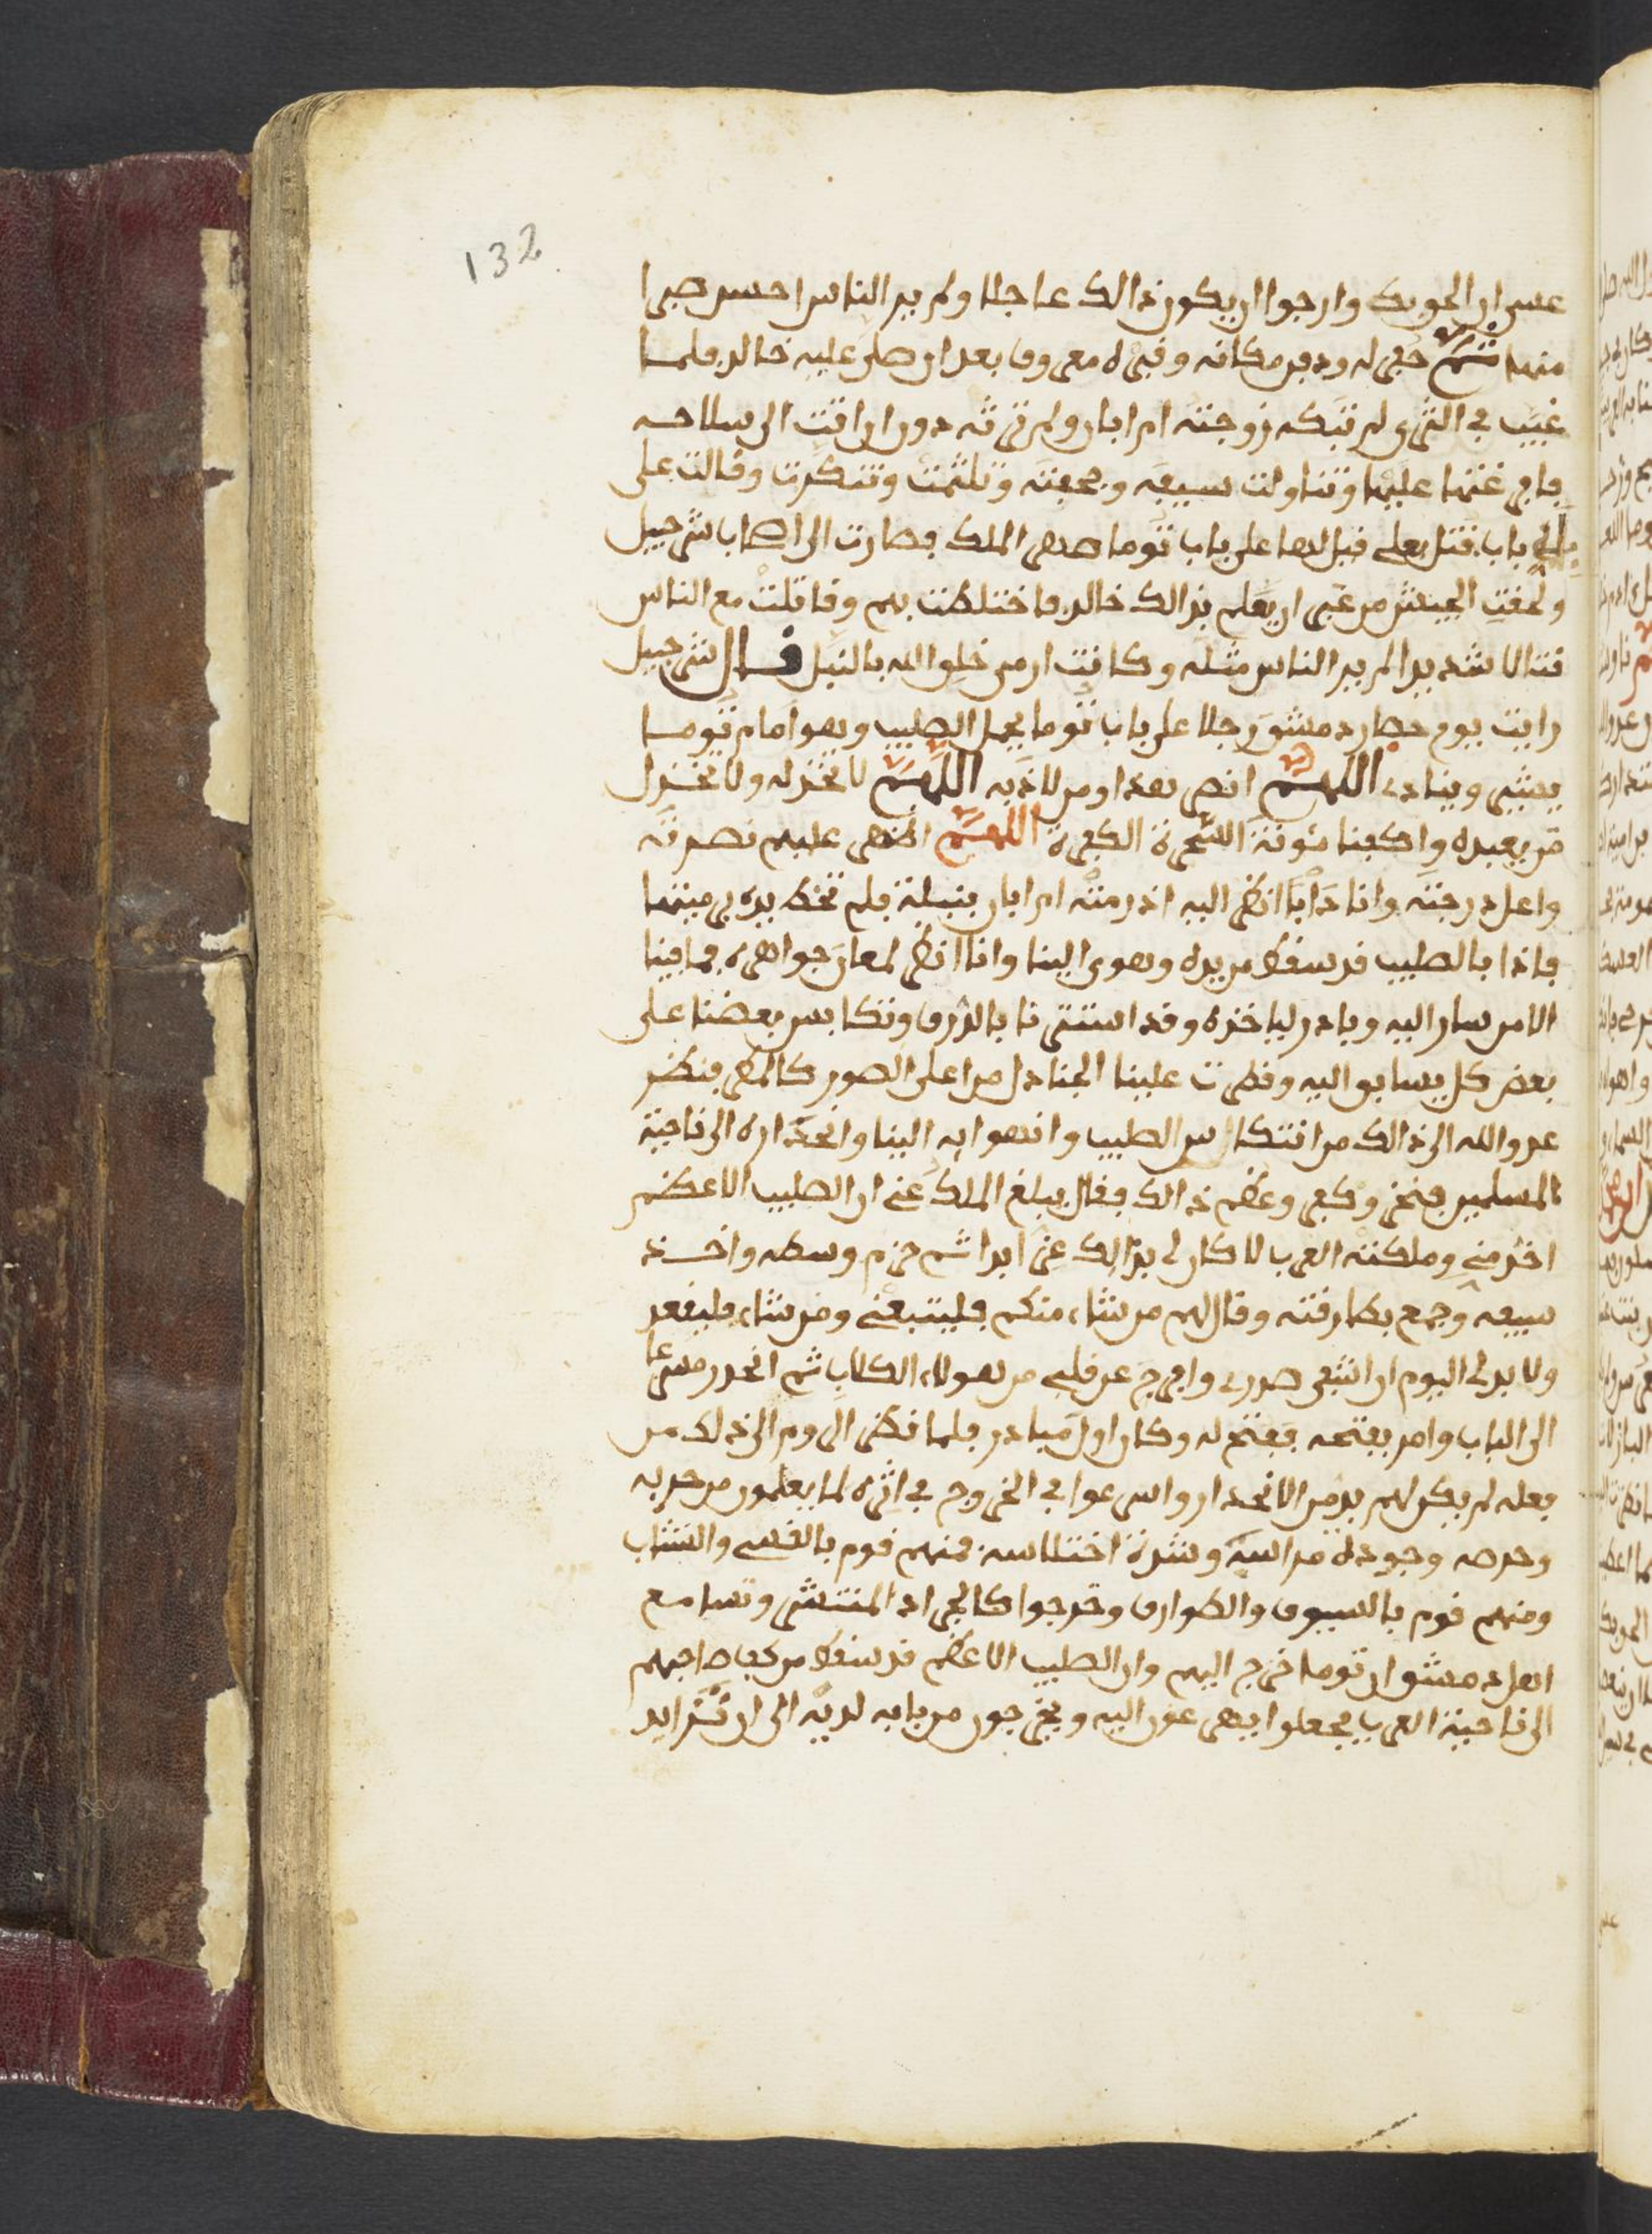 132
عسى ان الحق بك وارجوا ان يكون ذالك عاجلا ولم ير الناس احسن صبرا
منها ثم حفر له ودفن مكانه وقبره معروف بعد ان صلى عليه خالد فلما
غيب في الثرى لم تبك زوجته ام ابان ولم ترثه دون ان اتت الى سلاحه
فافرغتها عليها وتناولت سيفه وجحفته وتلثمت وتنكرت وقالت على
باب قتل بعلي قيل لها على باب توما صهر الملك فصارت الى اصحاب شرحبيل
ولحقت الجيش من غير ان يعلم بذالك خالد فاختلطت بهم وقاتلت مع الناس
قتالا شديدا لم ير الناس مثله وكانت ارمى خلق الله بالنبل قال شرحبيل
رايت يوم حصار دمشق رجلا على باب توما يحمل الصليب وهو امام توما
يشير وينادي اللهم انصر هذا ومن لاذ به اللهم لا تخذله ولا تخذل
من يعبده واكفنا مئونة الشجرة الكفرة اللهم اظهر عليهم نصرته
واعل درجته وانا دايبا انظر اليه اذ رمته ام ابان بنبلة فلم تخط يده في ميتها
فاذا بالصليب قد سقط من يده وهوى الينا وانا انظر لمعان جواهره فما فينا
الا من سار اليه وبادر لياخذه وقد استترنا بالدرق وتكابس بعضنا على
بعض كل يسابق اليه وقطرت علينا الجنادل من اعلى الصور كالمطر فنظر
عدو الله الى ذالك من انتكاس الصليب وانهوابه الينا وانحداره الى ناحية
المسلمين فنخر وكفر وعظم ذالك فقال يبلغ الملك عني ان الصليب الاعظم
اخذ مني وملكته العرب لا كان لي بذالك عذر ابدا ثم حزم وسطه واخذ
سيفه وجمع بطارقته وقال لهم من شاء منكم فليتبعني ومن شاء فليقعد
ولا بد لي اليوم ان اشفي صدري وافرج عن قلبي من هولاء الكلاب ثم انحدر مسرعا
الى الباب وامر بفتحه ففتح له وكان اول مبادر فلما نظر الروم الى ذلك من
فعله لم يكن لهم بد من الانحدار واسرعوا في الخروج في اثره لما يعلمون من حربه
وحرصه وجودة مراسه وشدة اختلاسه فمنهم قوم بالقسي والنشاب
ومنهم قوم بالسيوف والطوارق وخرجوا كالجراد المنتشر وتسامع
اهل دمشق ان توما خرج اليهم وان الصليب الاعظم قد سقط من كف صاحبهم
الى ناحية العرب فجعلوا يهرعون اليه ويخرجون من بابه لديه الى ان تزايد